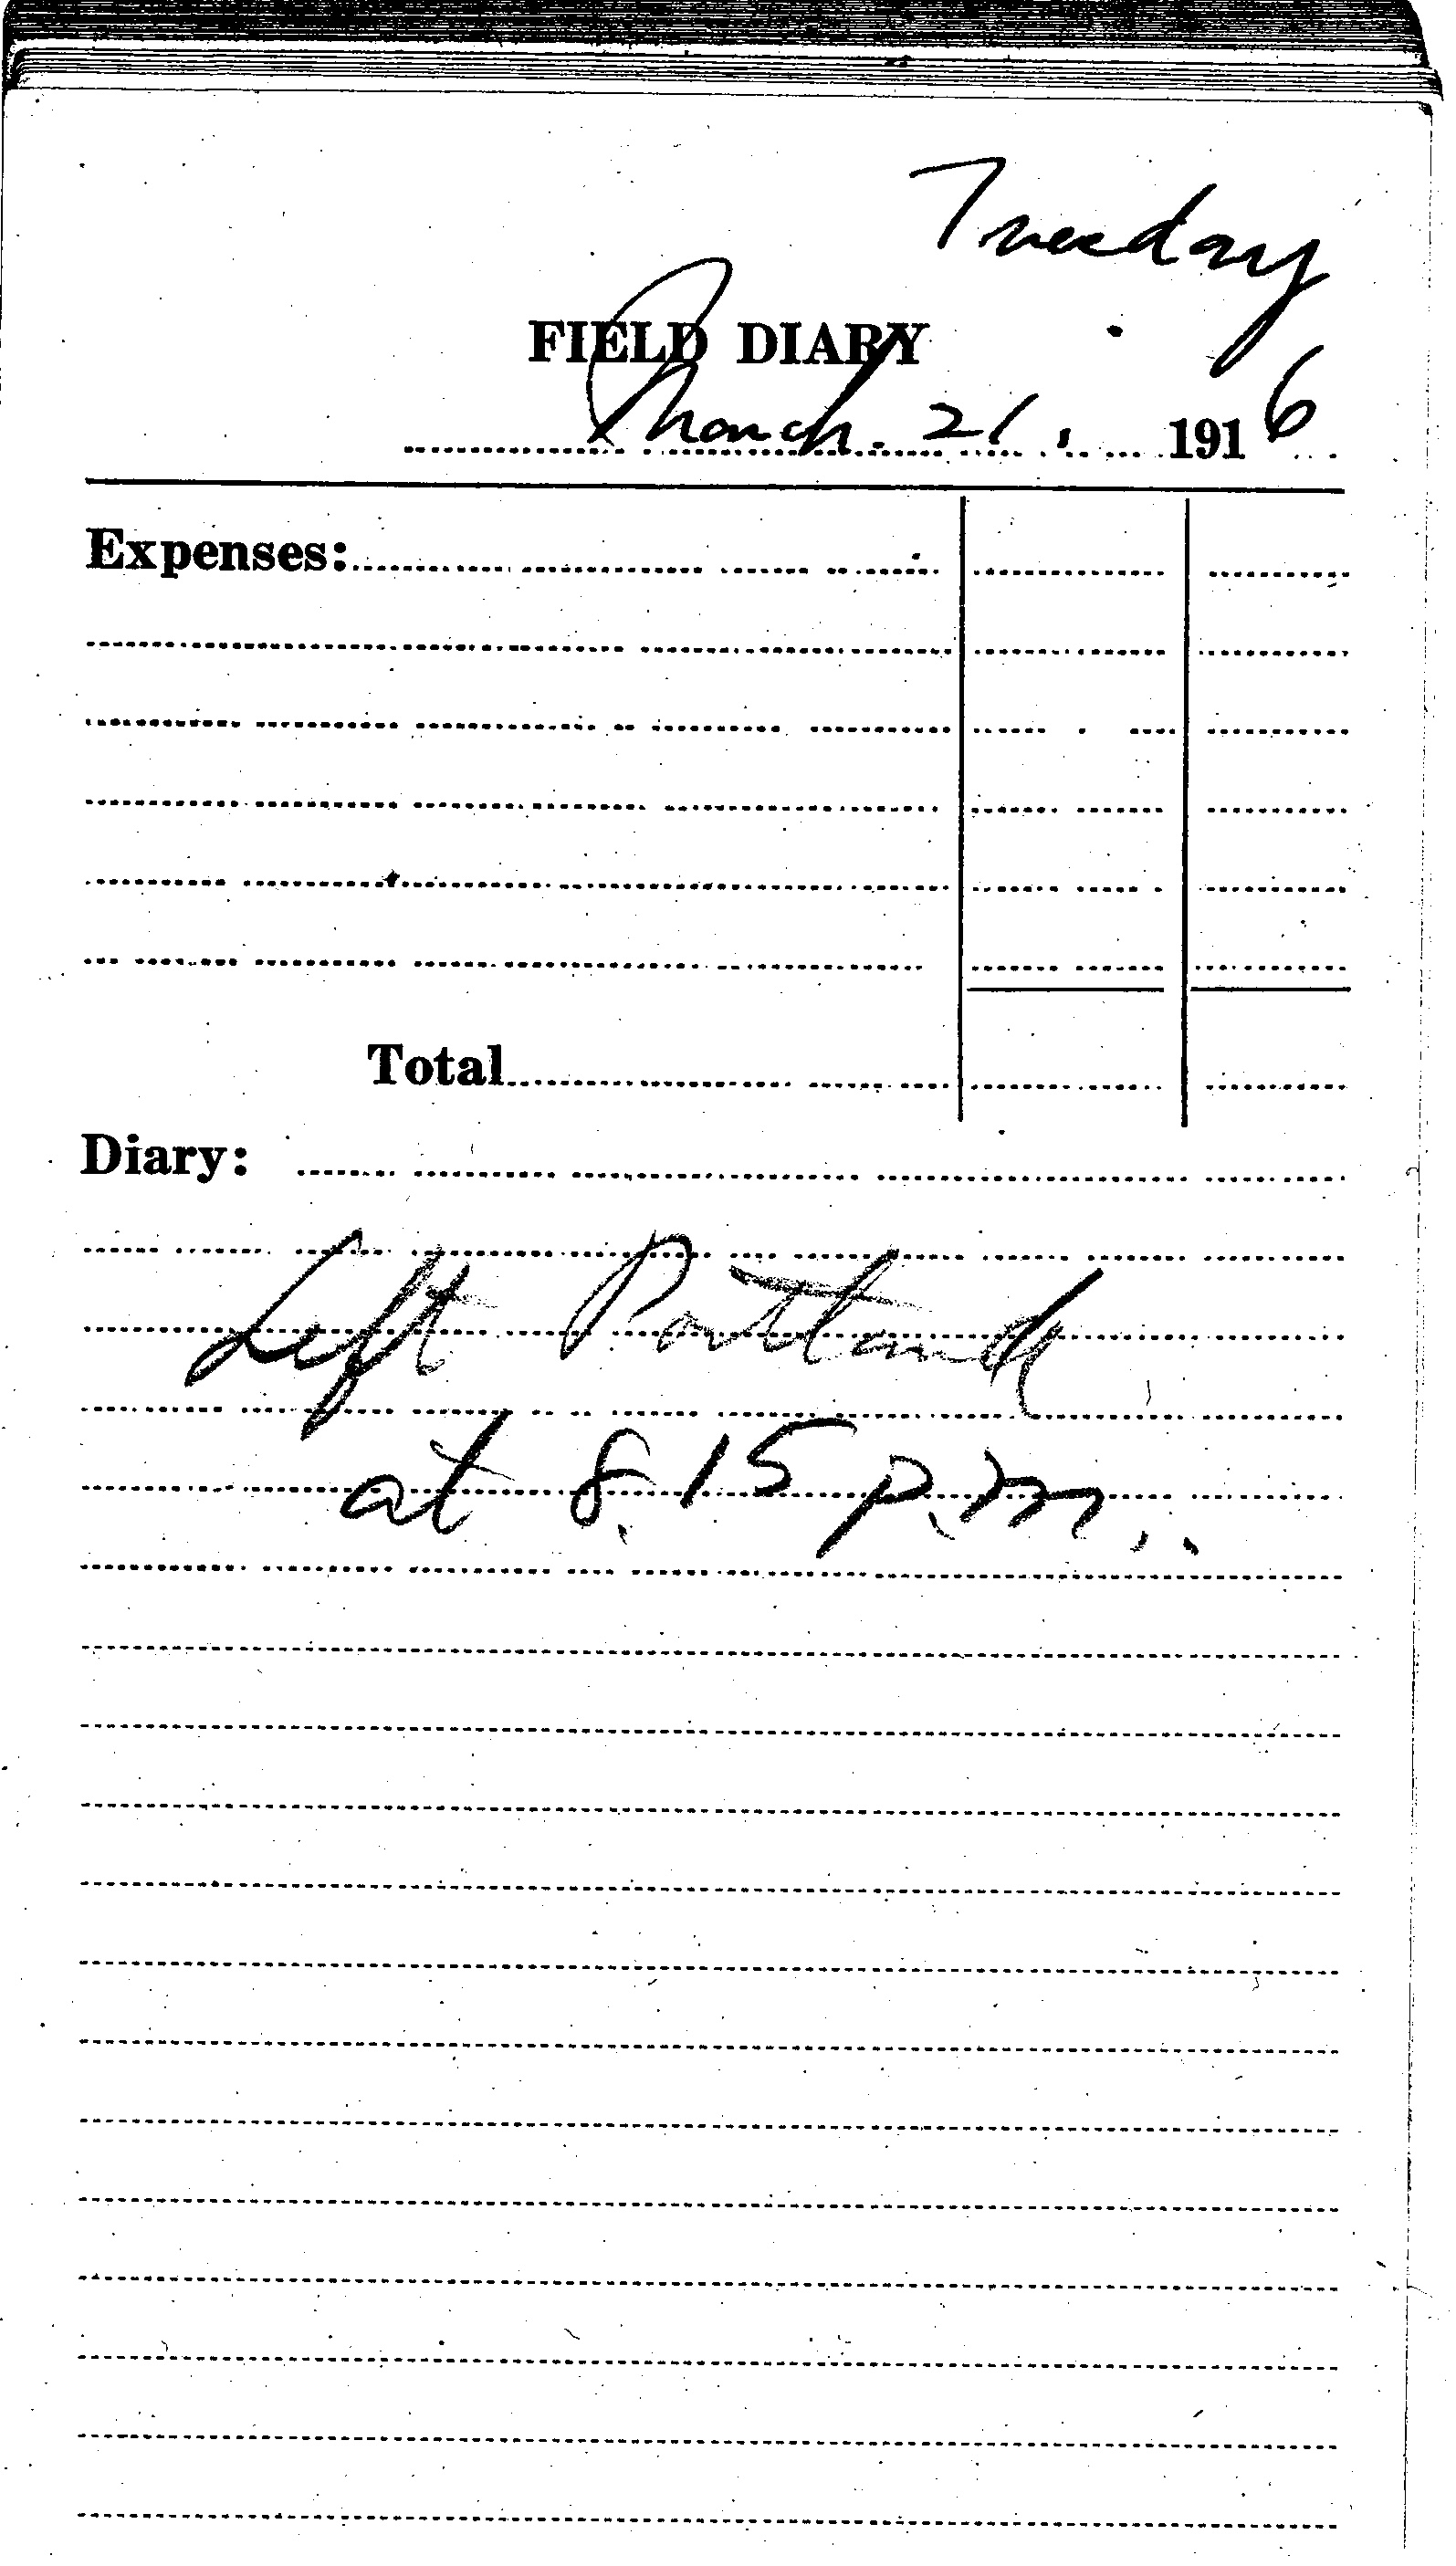 Tuesday
FIELD DIARY
March. 21. 1916
Expenses:
Total
Diary:
Left Portland
at 8.15 p.m.